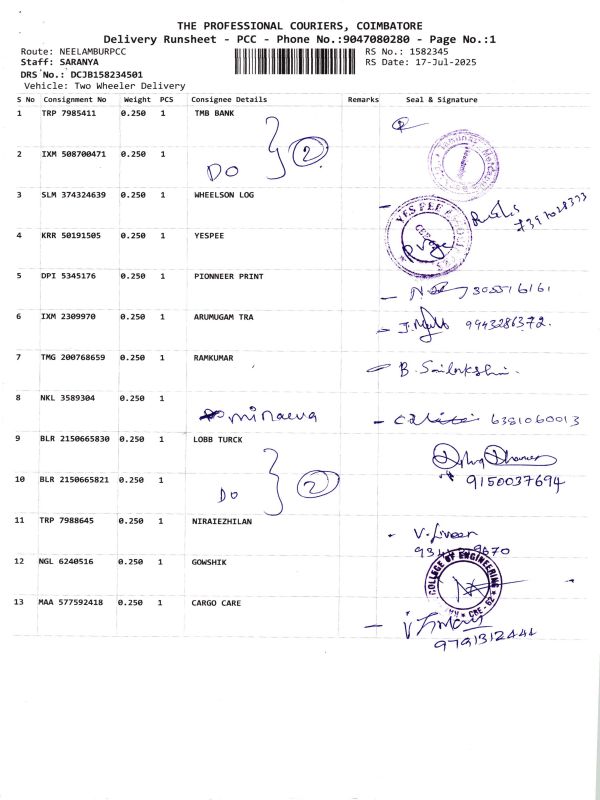 THE PROFESSIONAL COURIERS, COIMBATORE
Delivery Runsheet - PCC - Phone No.:9047080280 - Page No.:1
Route: NEELAMBURPCC RS No.: 1582345
Staff: SARANYA RS Date: 17-Jul-2025
DRS No.: DCJB158234501
Vehicle: Two Wheeler Delivery
S No Consignment No Weight PCS Consignee Details Remarks Seal & Signature
1 TRP 7985411 0.250 1 TMB BANK
2 IXM 508700471 0.250 1 DO 2
3 SLM 374324639 0.250 1 WHEELSON LOG
4 KRR 50191505 0.250 1 YESPEE
5 DPI 5345176 0.250 1 PIONNEER PRINT
6 IXM 2309970 0.250 1 ARUMUGAM TRA 9943286372.
7 TMG 200768659 0.250 1 RAMKUMAR
8 NKL 3589304 0.250 1 minaeva 6381060013
9 BLR 2150665830 0.250 1 LOBB TURCK
10 BLR 2150665821 0.250 1 DO 2 9150037694
11 TRP 7988645 0.250 1 NIRAIEZHILAN
12 NGL 6240516 0.250 1 GOWSHIK COLLEGE OF ENGINEERING CBE - 62
13 MAA 577592418 0.250 1 CARGO CARE
9791312444